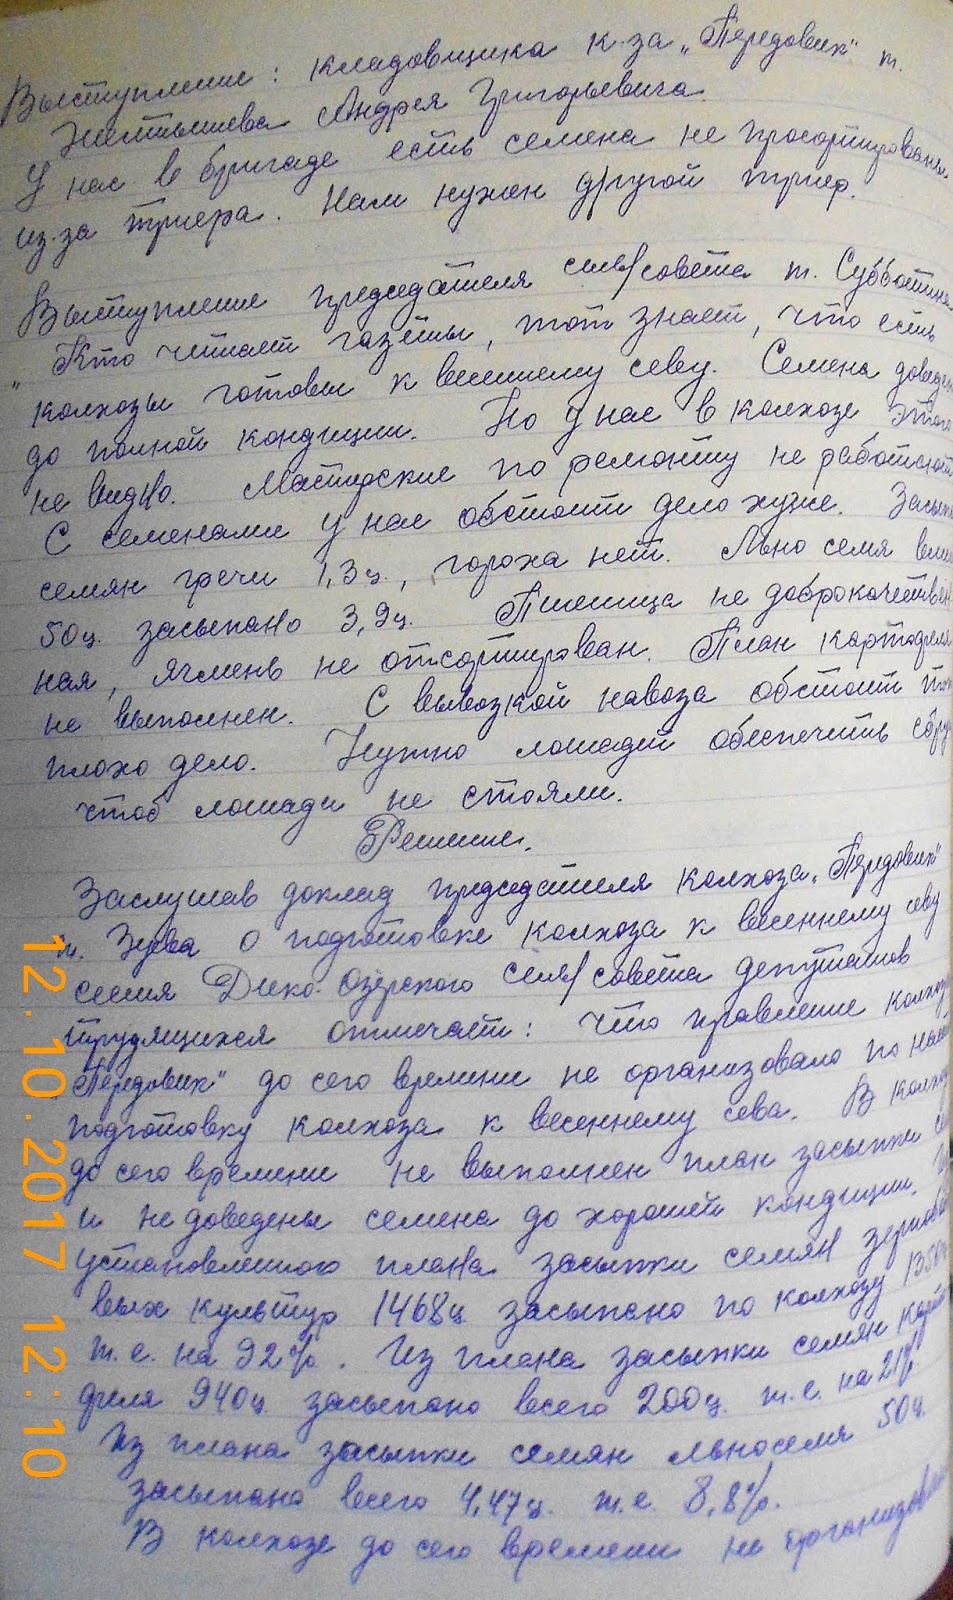 Выступление: кладовщика к-за „Передовик" т.
Андрея Григорьевича.
У нас в бригаде есть семена не просортированы
из-за триера. Нам нужен другой триер.
Выступление председателя сель/совета т. Субботина
„Кто читает газеты, тот знает, что есть
колхозы готовы к весеннему севу. Семена доведены
до полной кондиции. Но у нас в колхозе этого
не видно. Мастерские по ремонту не работают
С семенами у нас обстоит дело хуже.
семян гречи 1,3ц., гороха нет. Льно семя
50ц. засыпано 3,9ц. Пшеница не доброкачествен
ная, ячмень не отсортирован. План картофеля
не выполнен. С вывозкой навоза обстоит
плохо дело. Нужно лошадей обеспечить
чтоб лошади не стояли.
Решение.
Заслушав доклад председателя колхоза „Передовик"
т. о подготовке колхоза к весеннему севу
сессия Дико-Озерского сель/совета депутатов
трудящихся отмечает: что правление колхоза
„Передовик" до сего времени не организовало
подготовку колхоза к весеннему сева. В колхозе
до сего времени не выполнен план засыпки
и не доведены семена до хорошей кондиции. Из
установленного плана засыпки семян
вых культур 1468ц засыпано по колхозу
т.е. на 92%. Из плана засыпки семян карто
феля 940ц. засыпано всего 200ц. т.е. на 21%
Из плана засыпки семян льносемя 50ц.
засыпано всего 4,47ц. т.е. 8,8%.
В колхозе до сего времени не
12.10.2017 12:10